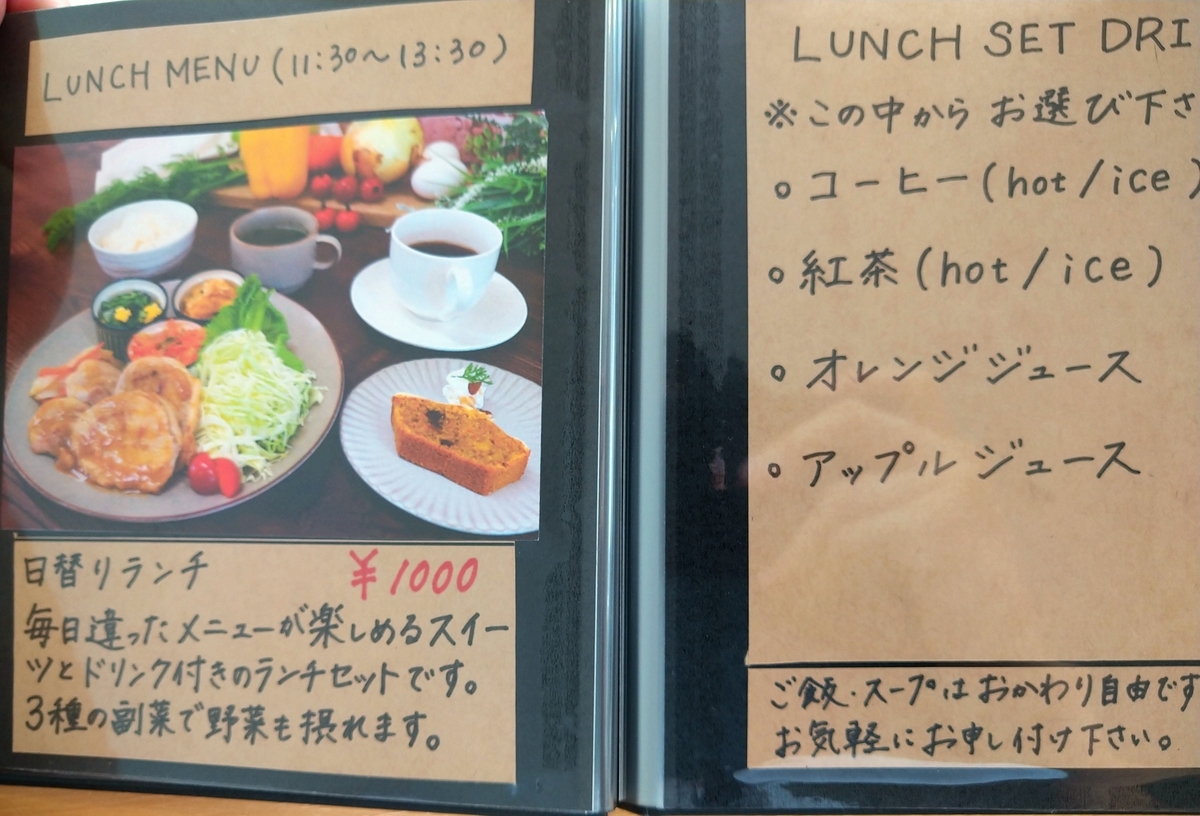 LUNCH MENU (11:30～13:30)
日替りランチ ¥1000
毎日違ったメニューが楽しめるスイー
ツとドリンク付きのランチセットです。
3種の副菜で野菜も摂れます。
LUNCH SET DRI
※この中から お選び下さ
○コーヒー(hot/ice)
○紅茶(hot/ice)
○オレンジジュース
○アップルジュース
ご飯・スープはおかわり自由です
お気軽にお申し付け下さい。